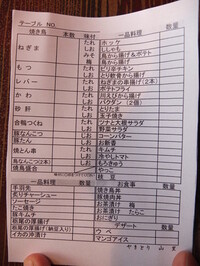 テーブル NO.
焼き鳥 味付 数量 一品料理 数量
たれ ホッケ
ねぎま しお ししゃも
みそ 鳥から揚げ&ポテト
梅 鳥から揚げ
もつ たれ ピリ辛チキン
しお とり軟骨から揚げ
レバー たれ ねぎまの串揚げ(2本)
しお ポテトフライ
かわ たれ 川えびから揚げ
しお バクダン(2個)
砂肝 たれ とりたま
しお 玉子焼き
合鴨つくね たれ ツナと大根サラダ
しお 野菜サラダ
豚なんこつ しお コーンバター
豚たん しお お新香
豚とろ たれ キムチ
鳥なんこつ(2本) しお 冷やしトマト
焼鳥盛合 たれ もろきゅう
しお やっこ
枝豆
一品料理 数量 お食事
手羽先 焼き鳥丼
炙りチャーシュー 豚焼肉丼
ソーセージ お茶漬け 梅
たこ焼き お茶漬け たらこ
豚キムチ おにぎり
栃尾の厚揚げ デザート 数量
栃尾の厚揚げ(納豆入り) ウベ
イカの沖漬け マンゴアイス
やきとり